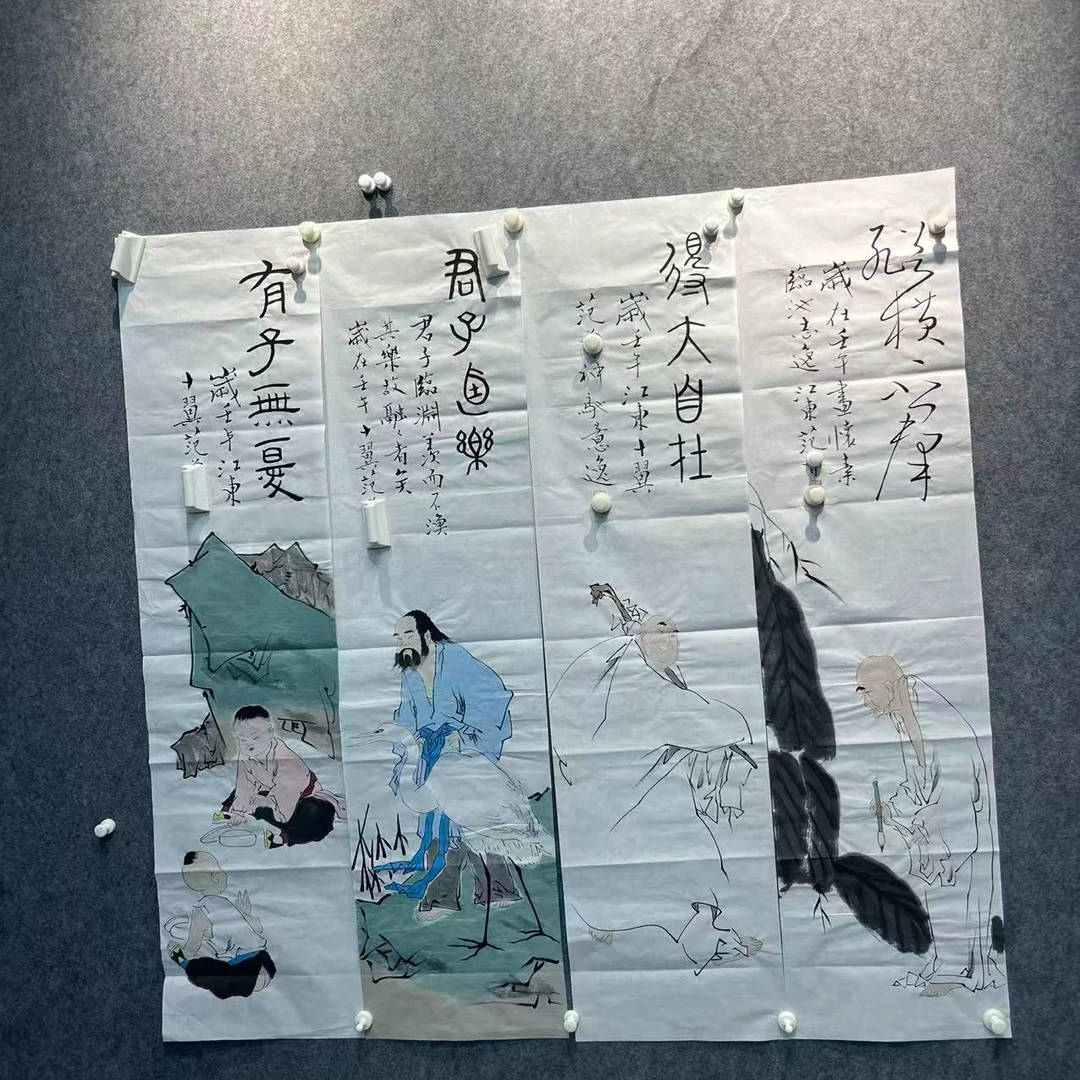 縱橫不羣
歲在壬午畫懷素
臨池志逸江東范
得大自在
歲壬午江東十翼
范神馳意逸
君子逌樂
君子臨淵羨而不漁
其樂故融々者矣
歲在壬午十翼范
有子無憂
歲壬午江東
十翼范